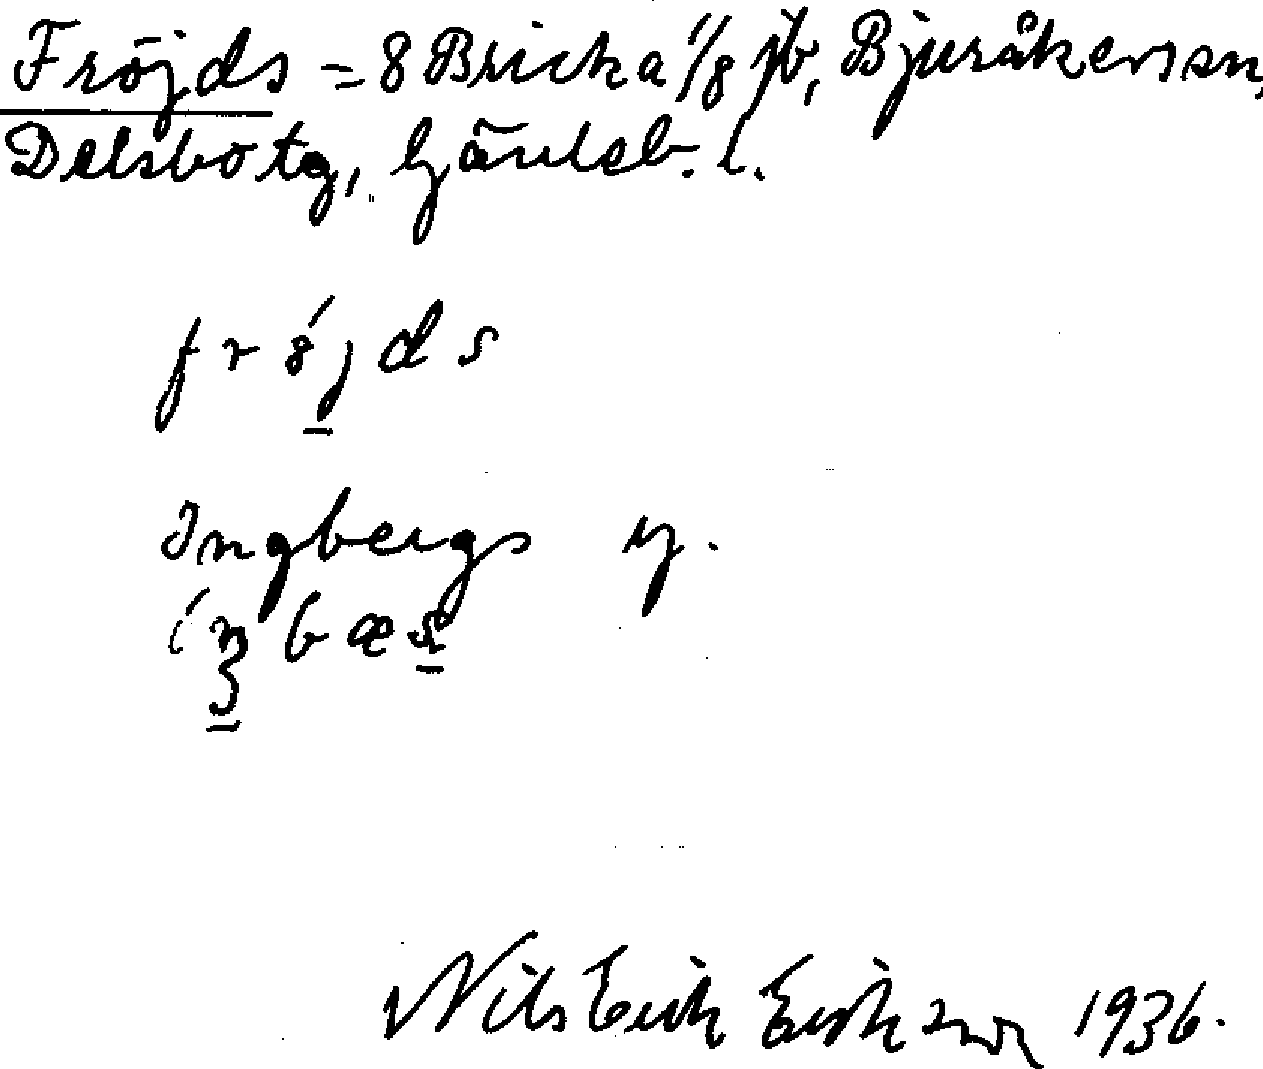 Fröjds = 8 Bricka 1/8 jb, Bjuråkers sn,
Delsbo tg, Gävleb. l.
frö́jds
Ingbergs y.
Nils Erik Erikson 1936.